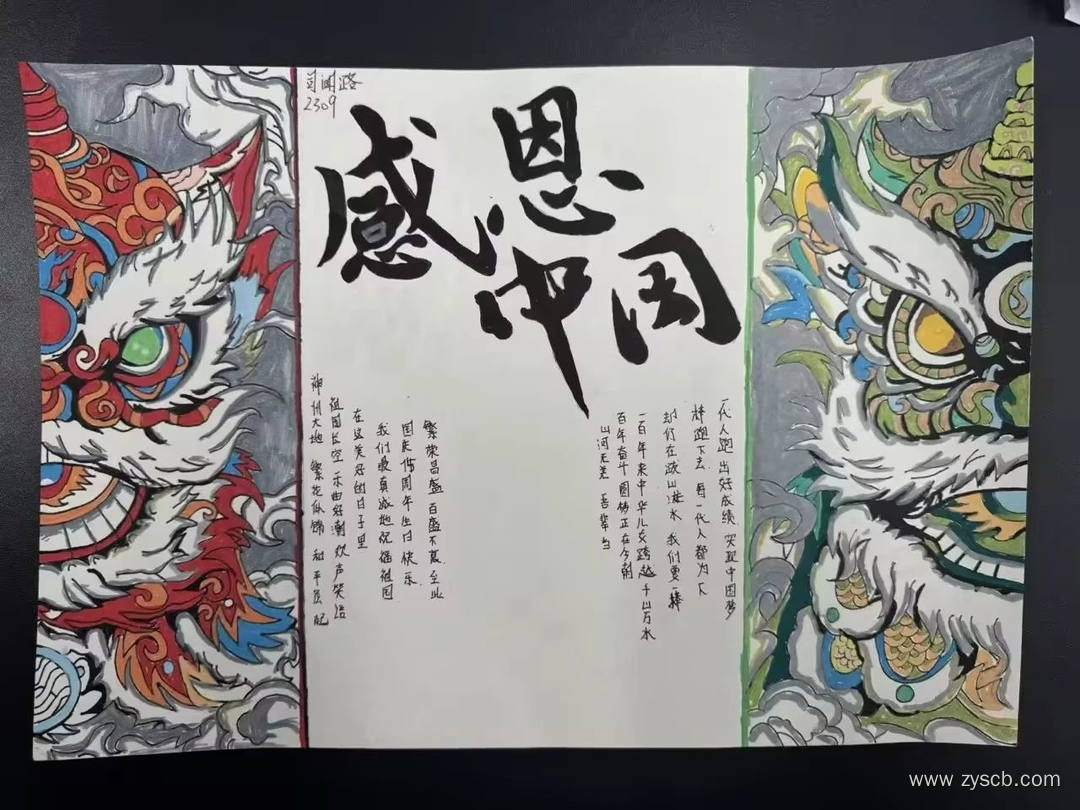 2309
感恩
中国
神州大地 繁花似锦 和平
祖国长空 乐曲 欢声笑语
在这美好的日子里
我们最真诚地祝福祖国
国庆 周年生日快乐
繁荣昌盛 百盛不衰
山河无恙 吾辈当
百年奋斗 正在今朝
一百年来中华儿女跨越千山万水
们在 山 水 我们要一棒
棒跑下去 每一代人都为下
一代人跑出好成绩 实现中国梦
www.zyscb.com